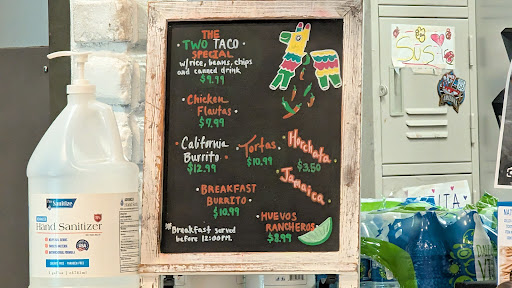 THE
TWO TACO
SPECIAL
w/rice, beans, chips
and canned drink
$9.99
Chicken
Flautas
$7.99
California
Burrito
$12.99
Tortas
$10.99
Horchata
$3.50
Jamaica
BREAKFAST
BURRITO
$10.99
HUEVOS
RANCHEROS
$8.99
*Breakfast served
before 12:00PM.
Hand Sanitizer
SUS